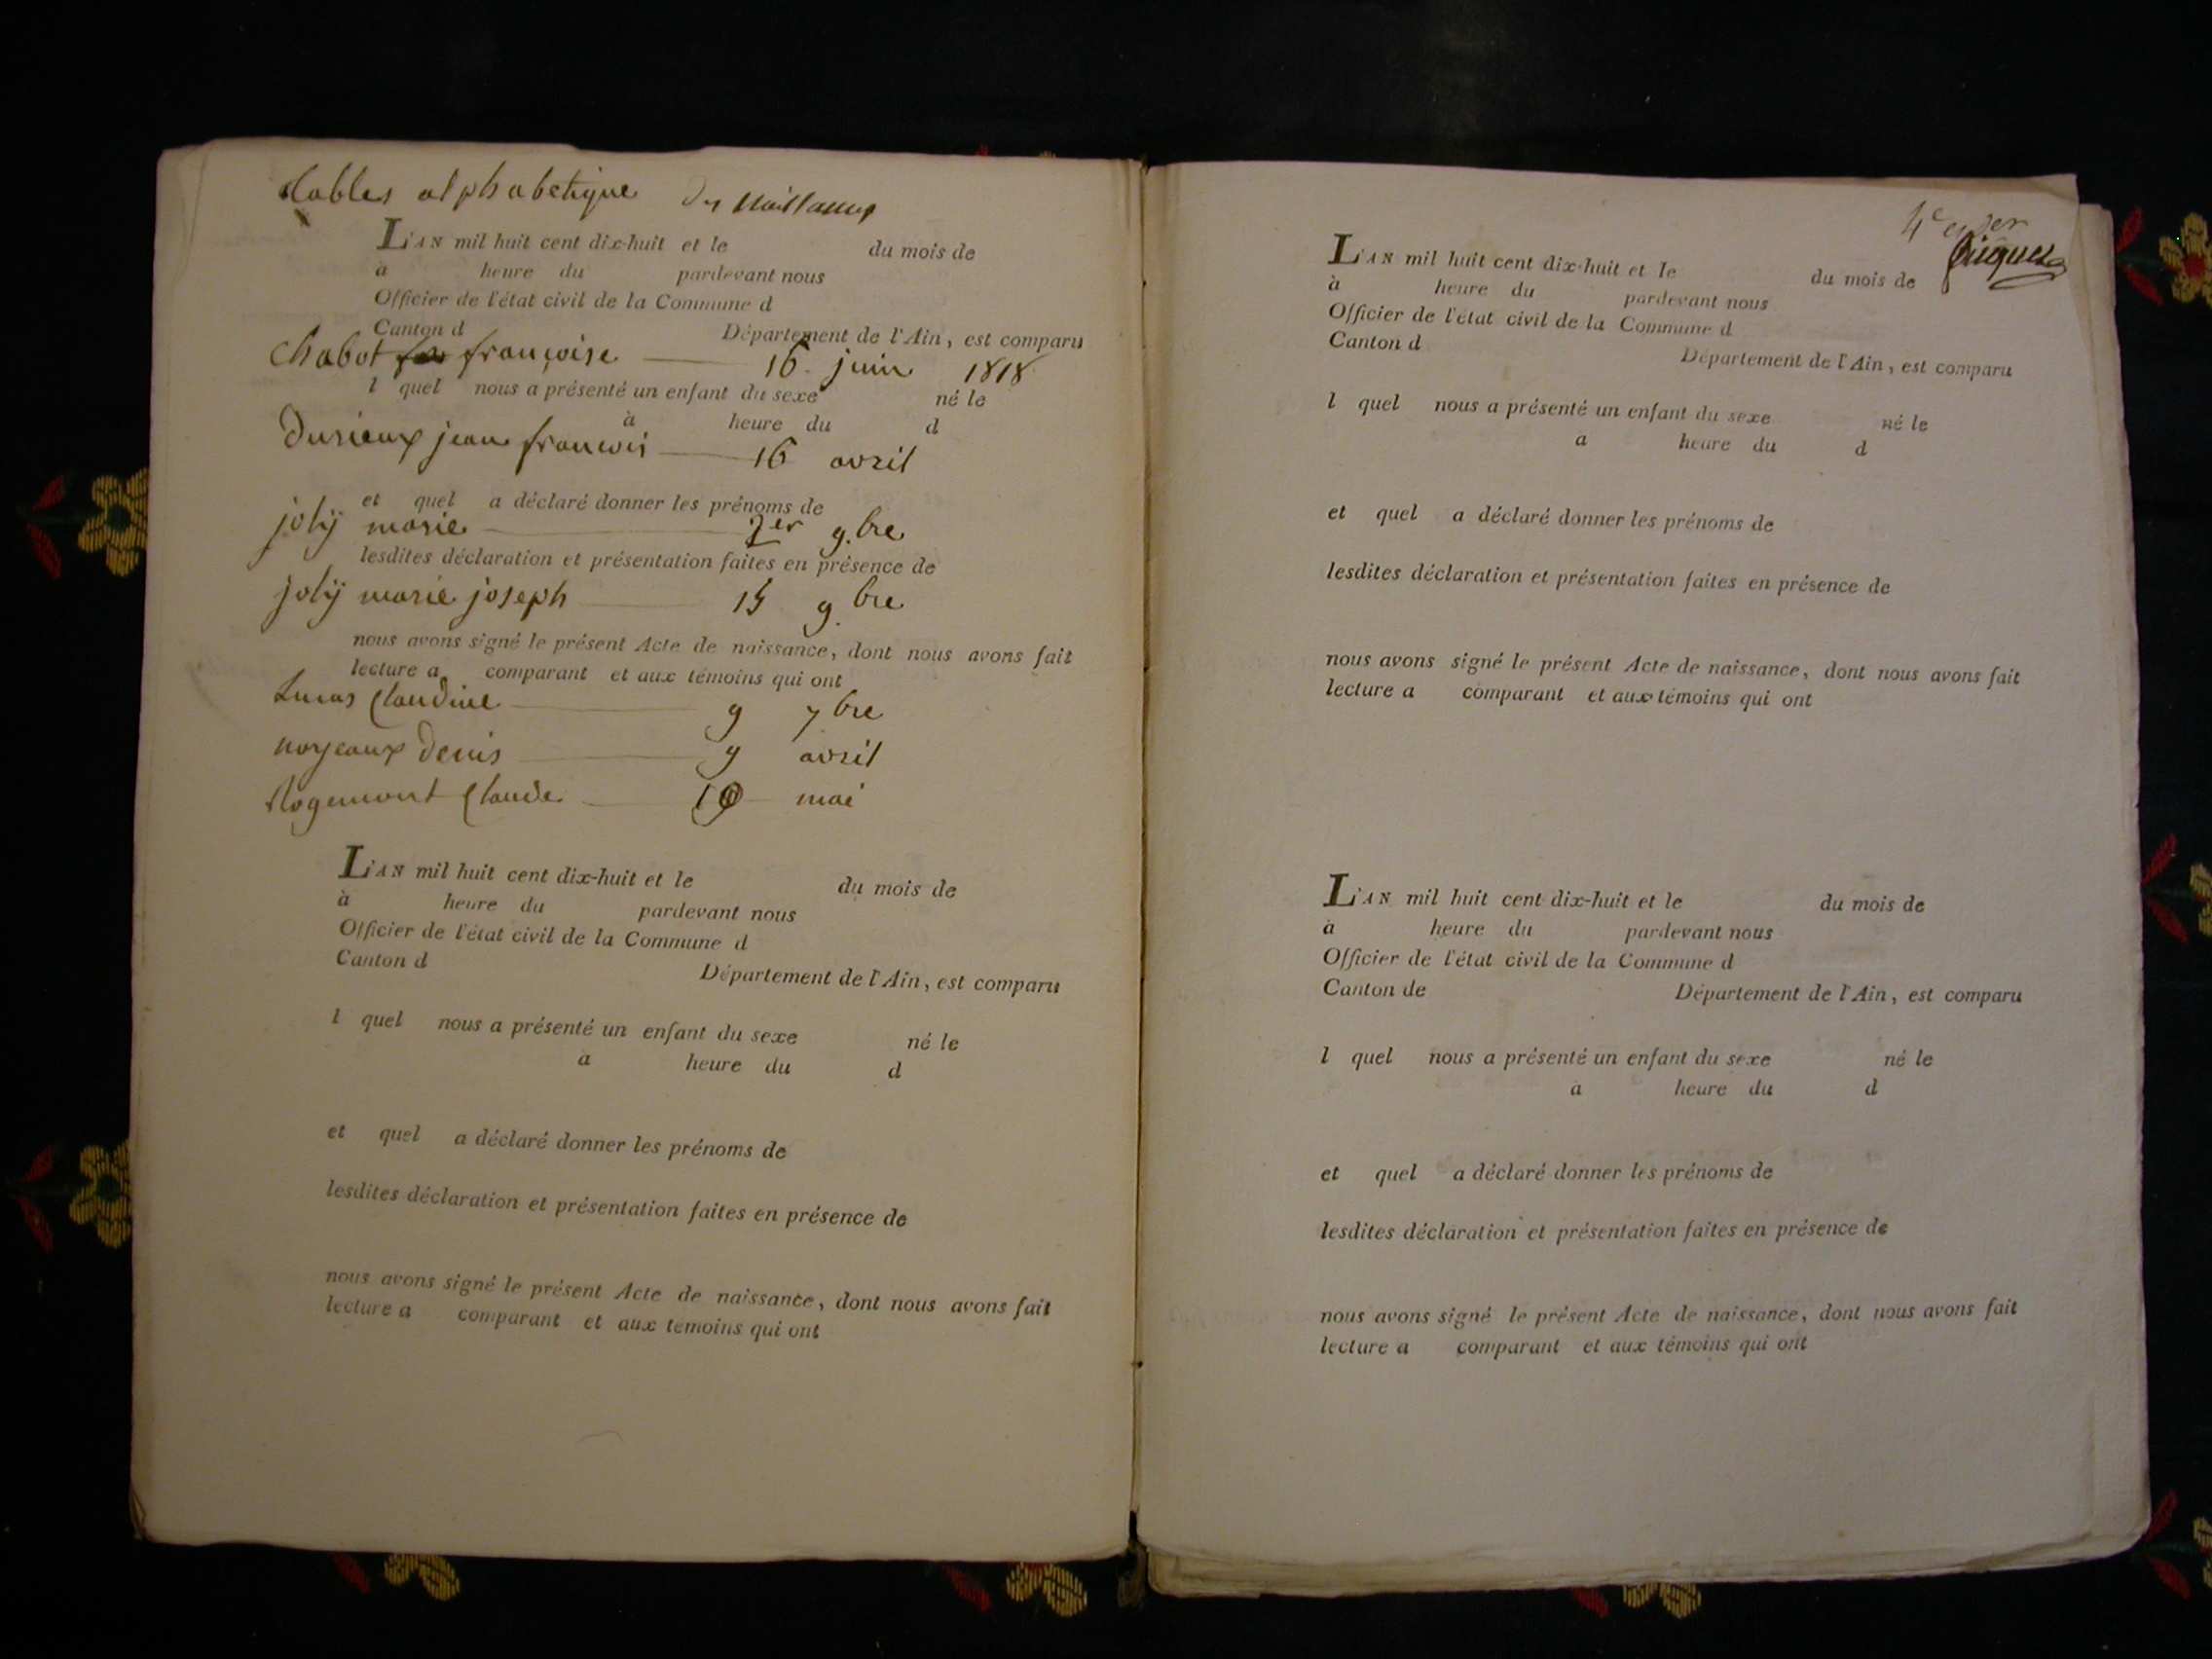 tables alphabetique Des Naissances
L'AN mil huit cent dix-huit et le du mois de
à heure du pardevant nous
Officier de l'état civil de la Commune d
Canton d Département de l'Ain, est comparu
Chabot françoise 16 juin 1818
l quel nous a présenté un enfant du sexe né le
à heure du d
Durieux jean francois 16 avril
et quel a déclaré donner les prénoms de
joly marie 1er 9.bre
lesdites déclaration et présentation faites en présence de
joly marie joseph 15 9.bre
nous avons signé le présent Acte de naissance, dont nous avons fait
lecture a comparant et aux témoins qui ont
Lucas Claudine 9 7bre
noyeaux Denis 9 avril
Rogemont Claude 10 mai
L'AN mil huit cent dix-huit et le du mois de
à heure du pardevant nous
Officier de l'état civil de la Commune d
Canton d Département de l'Ain, est comparu
l quel nous a présenté un enfant du sexe né le
à heure du d
et quel a déclaré donner les prénoms de
lesdites déclaration et présentation faites en présence de
nous avons signé le présent Acte de naissance, dont nous avons fait
lecture a comparant et aux temoins qui ont
L'AN mil huit cent dix-huit et le du mois de
à heure du pardevant nous
Officier de l'état civil de la Commune d
Canton d Département de l'Ain, est comparu
l quel nous a présenté un enfant du sexe né le
a heure du d
et quel a déclaré donner les prénoms de
lesdites déclaration et présentation faites en présence de
nous avons signé le présent Acte de naissance, dont nous avons fait
lecture a comparant et aux témoins qui ont
L'AN mil huit cent dix-huit et le du mois de
à heure du pardevant nous
Officier de l'état civil de la Commune d
Canton de Département de l'Ain, est comparu
l quel nous a présenté un enfant du sexe né le
à heure du d
et quel a déclaré donner les prénoms de
lesdites déclaration et présentation faites en présence de
nous avons signé le présent Acte de naissance, dont nous avons fait
lecture a comparant et aux témoins qui ont